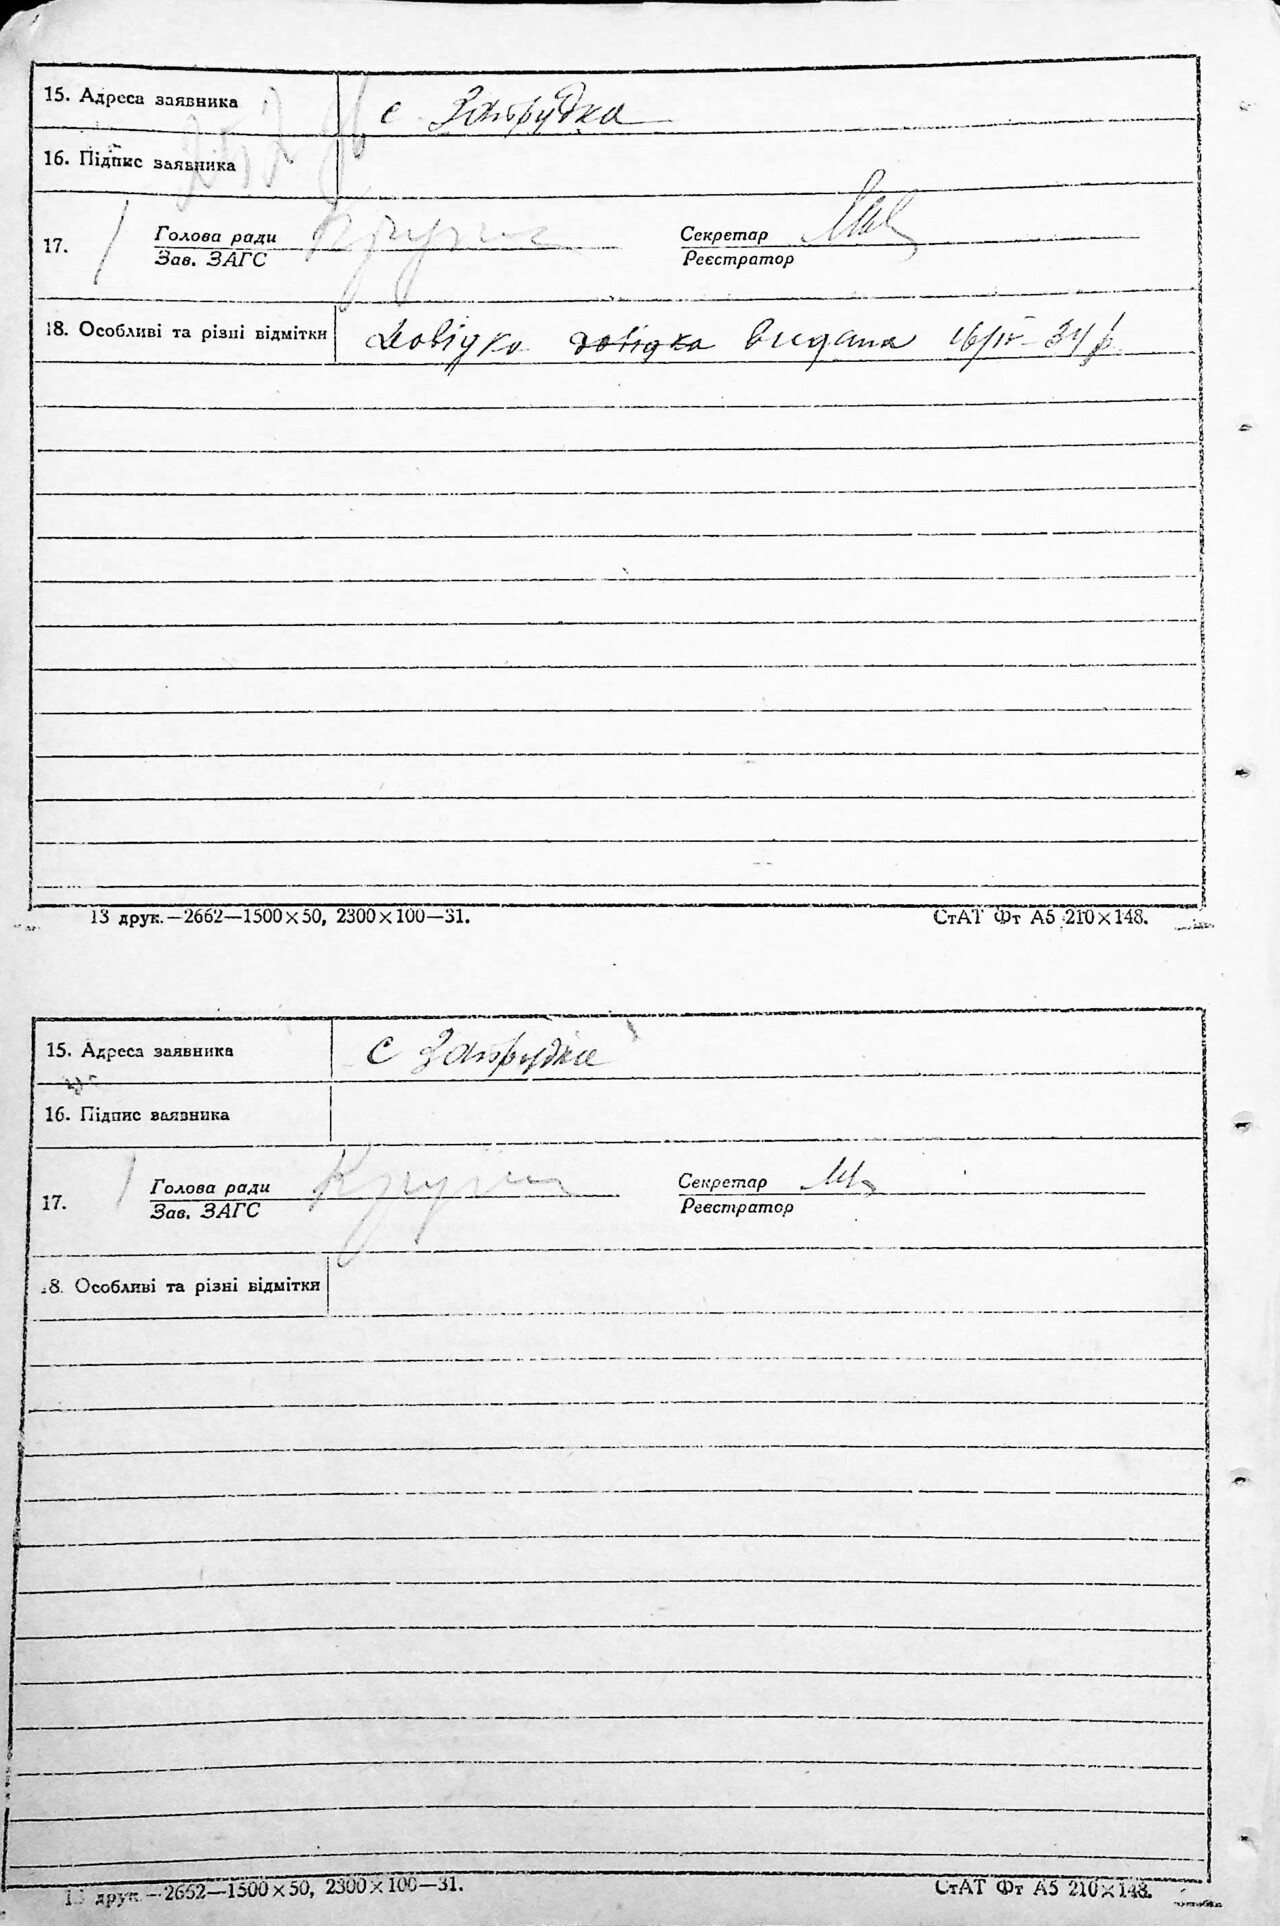 15. Адреса заявника с Запрудка
16. Підпис заявника
17. Голова ради Секретар
Зав. ЗАГС Реєстратор
18. Особливі та різні відмітки Довідка довідка видана 16/IV-34 р.
13 друк.—2662—1500×50, 2300×100—31. СтАТ Фт А5 210×148.
15. Адреса заявника с Запрудка
16. Підпис заявника
17. Голова ради Секретар
Зав. ЗАГС Реєстратор
18. Особливі та різні відмітки
13 друк.—2662—1500×50, 2300×100—31. СтАТ Фт А5 210×148.